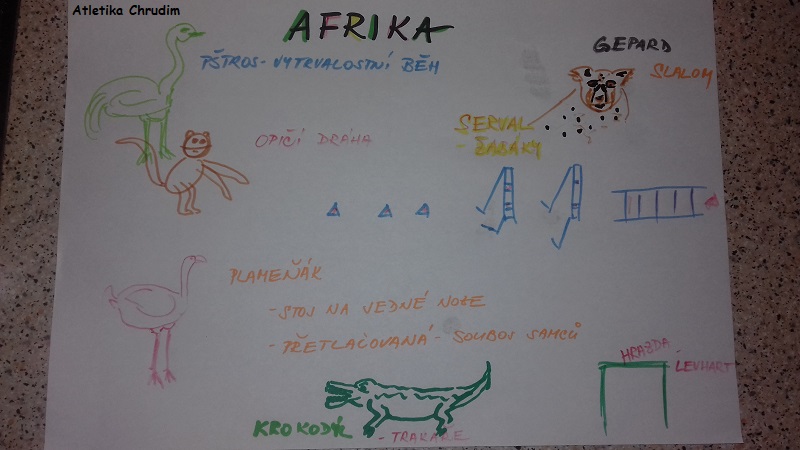 Atletika Chrudim
AFRIKA
PŠTROS - VYTRVALOSTNÍ BĚH
GEPARD
SLALOM
OPIČÍ DRÁHA
SERVAL
- ŽABÁKY
PLAMEŇÁK
- STOJ NA JEDNÉ NOZE
- PŘETLAČOVANÁ - SOUBOJ SAMCŮ
HRAZDA
LEVHART
KROKODÝL
- TRAKAŘE